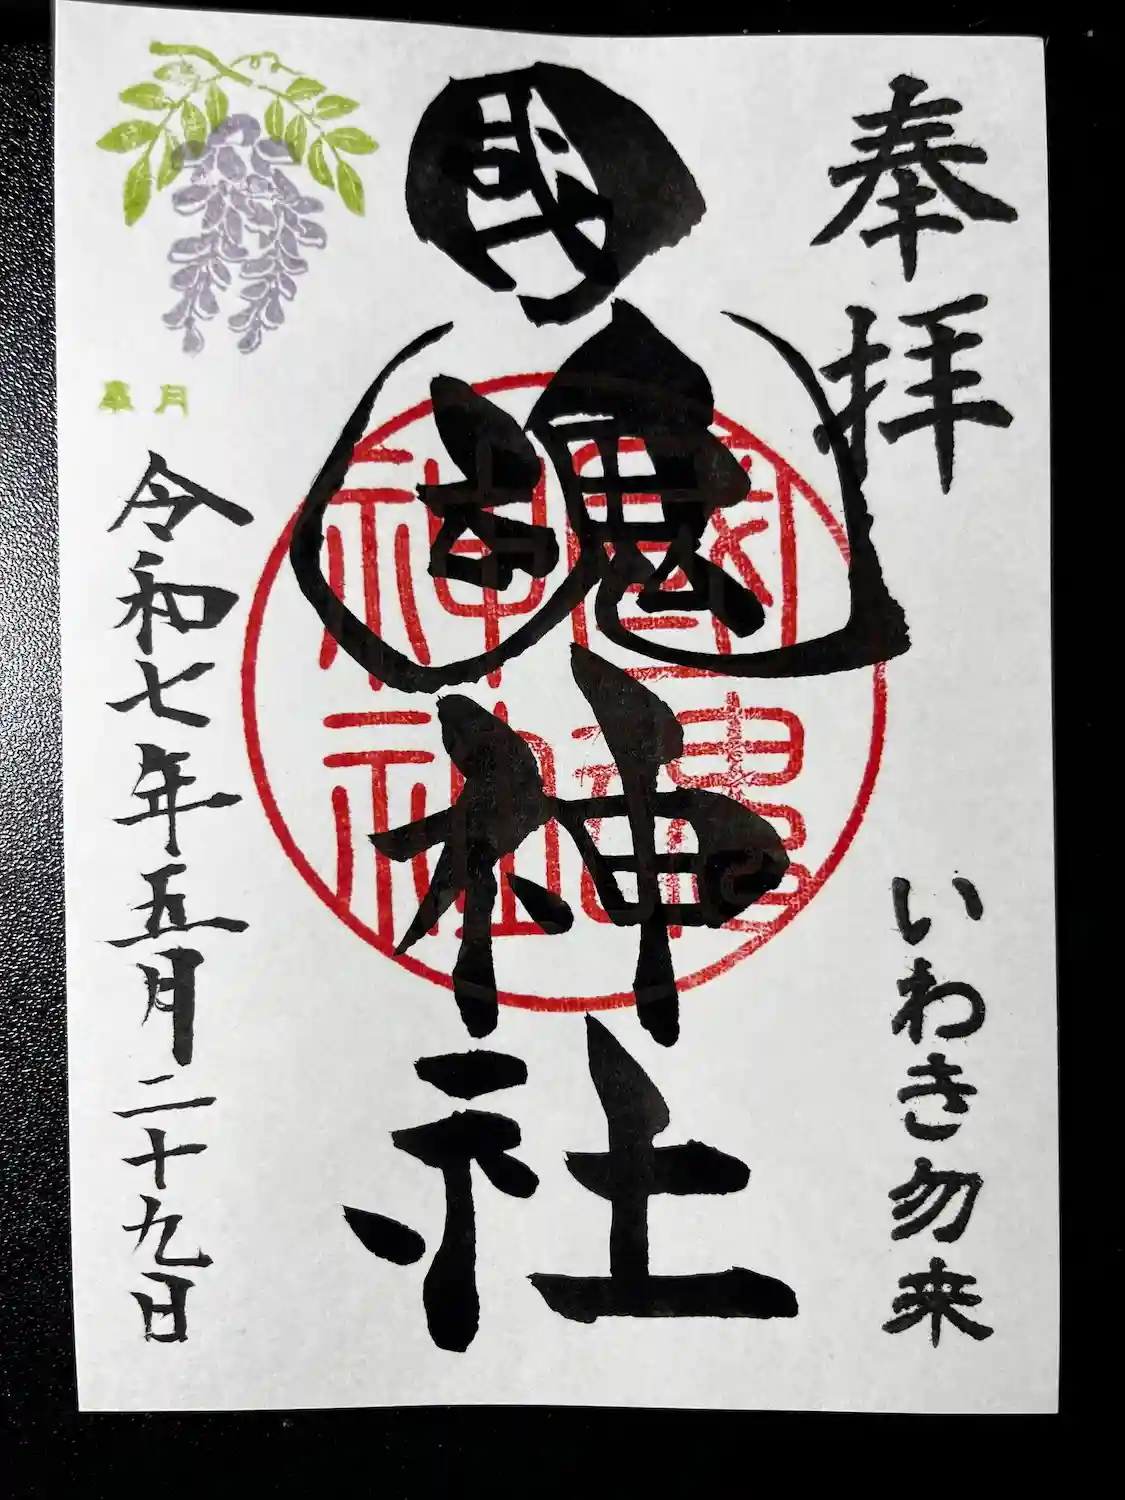 奉拝
いわき勿来
國魂神社
國魂
神社
皐月
令和七年五月二十九日